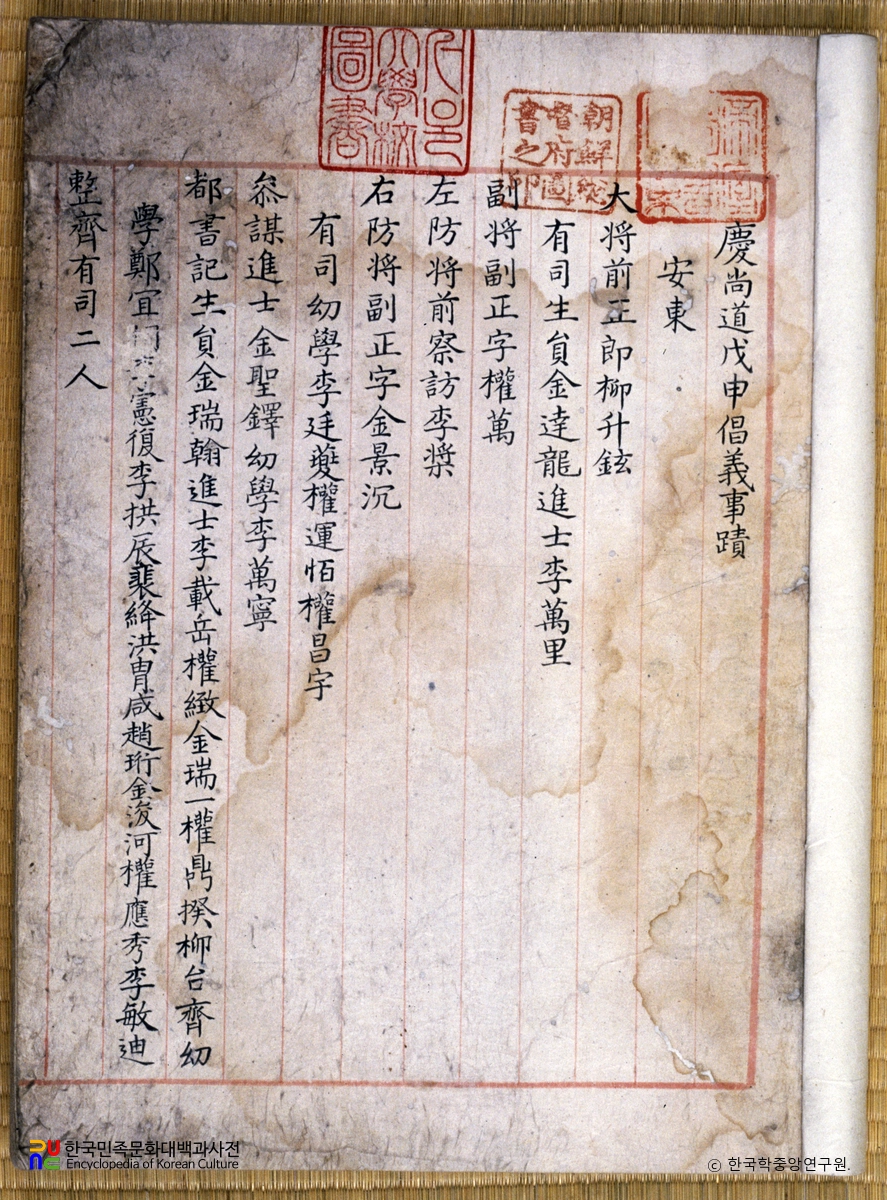 慶尚道戊申倡義事蹟
安東
大將前正郎柳升鉉
有司生員金達龍進士李萬里
副將副正字權萬
左防將前察訪李槳
右防將副正字金景沉
有司幼學李廷燮權運恒權昌宇
叅謀進士金聖鐸幼學李萬寧
都書記生員金瑞翰進士李載岳權緻金瑞一權鼎揆柳台齊幼
學鄭宜 憲復李拱辰裴絳洪胄咸趙珩金浚河權應秀李敏迪
整齊有司二人
朝鮮總
督府圖
書之印
大學校
圖書
한국민족문화대백과사전
Encyclopedia of Korean Culture
ⓒ 한국학중앙연구원.